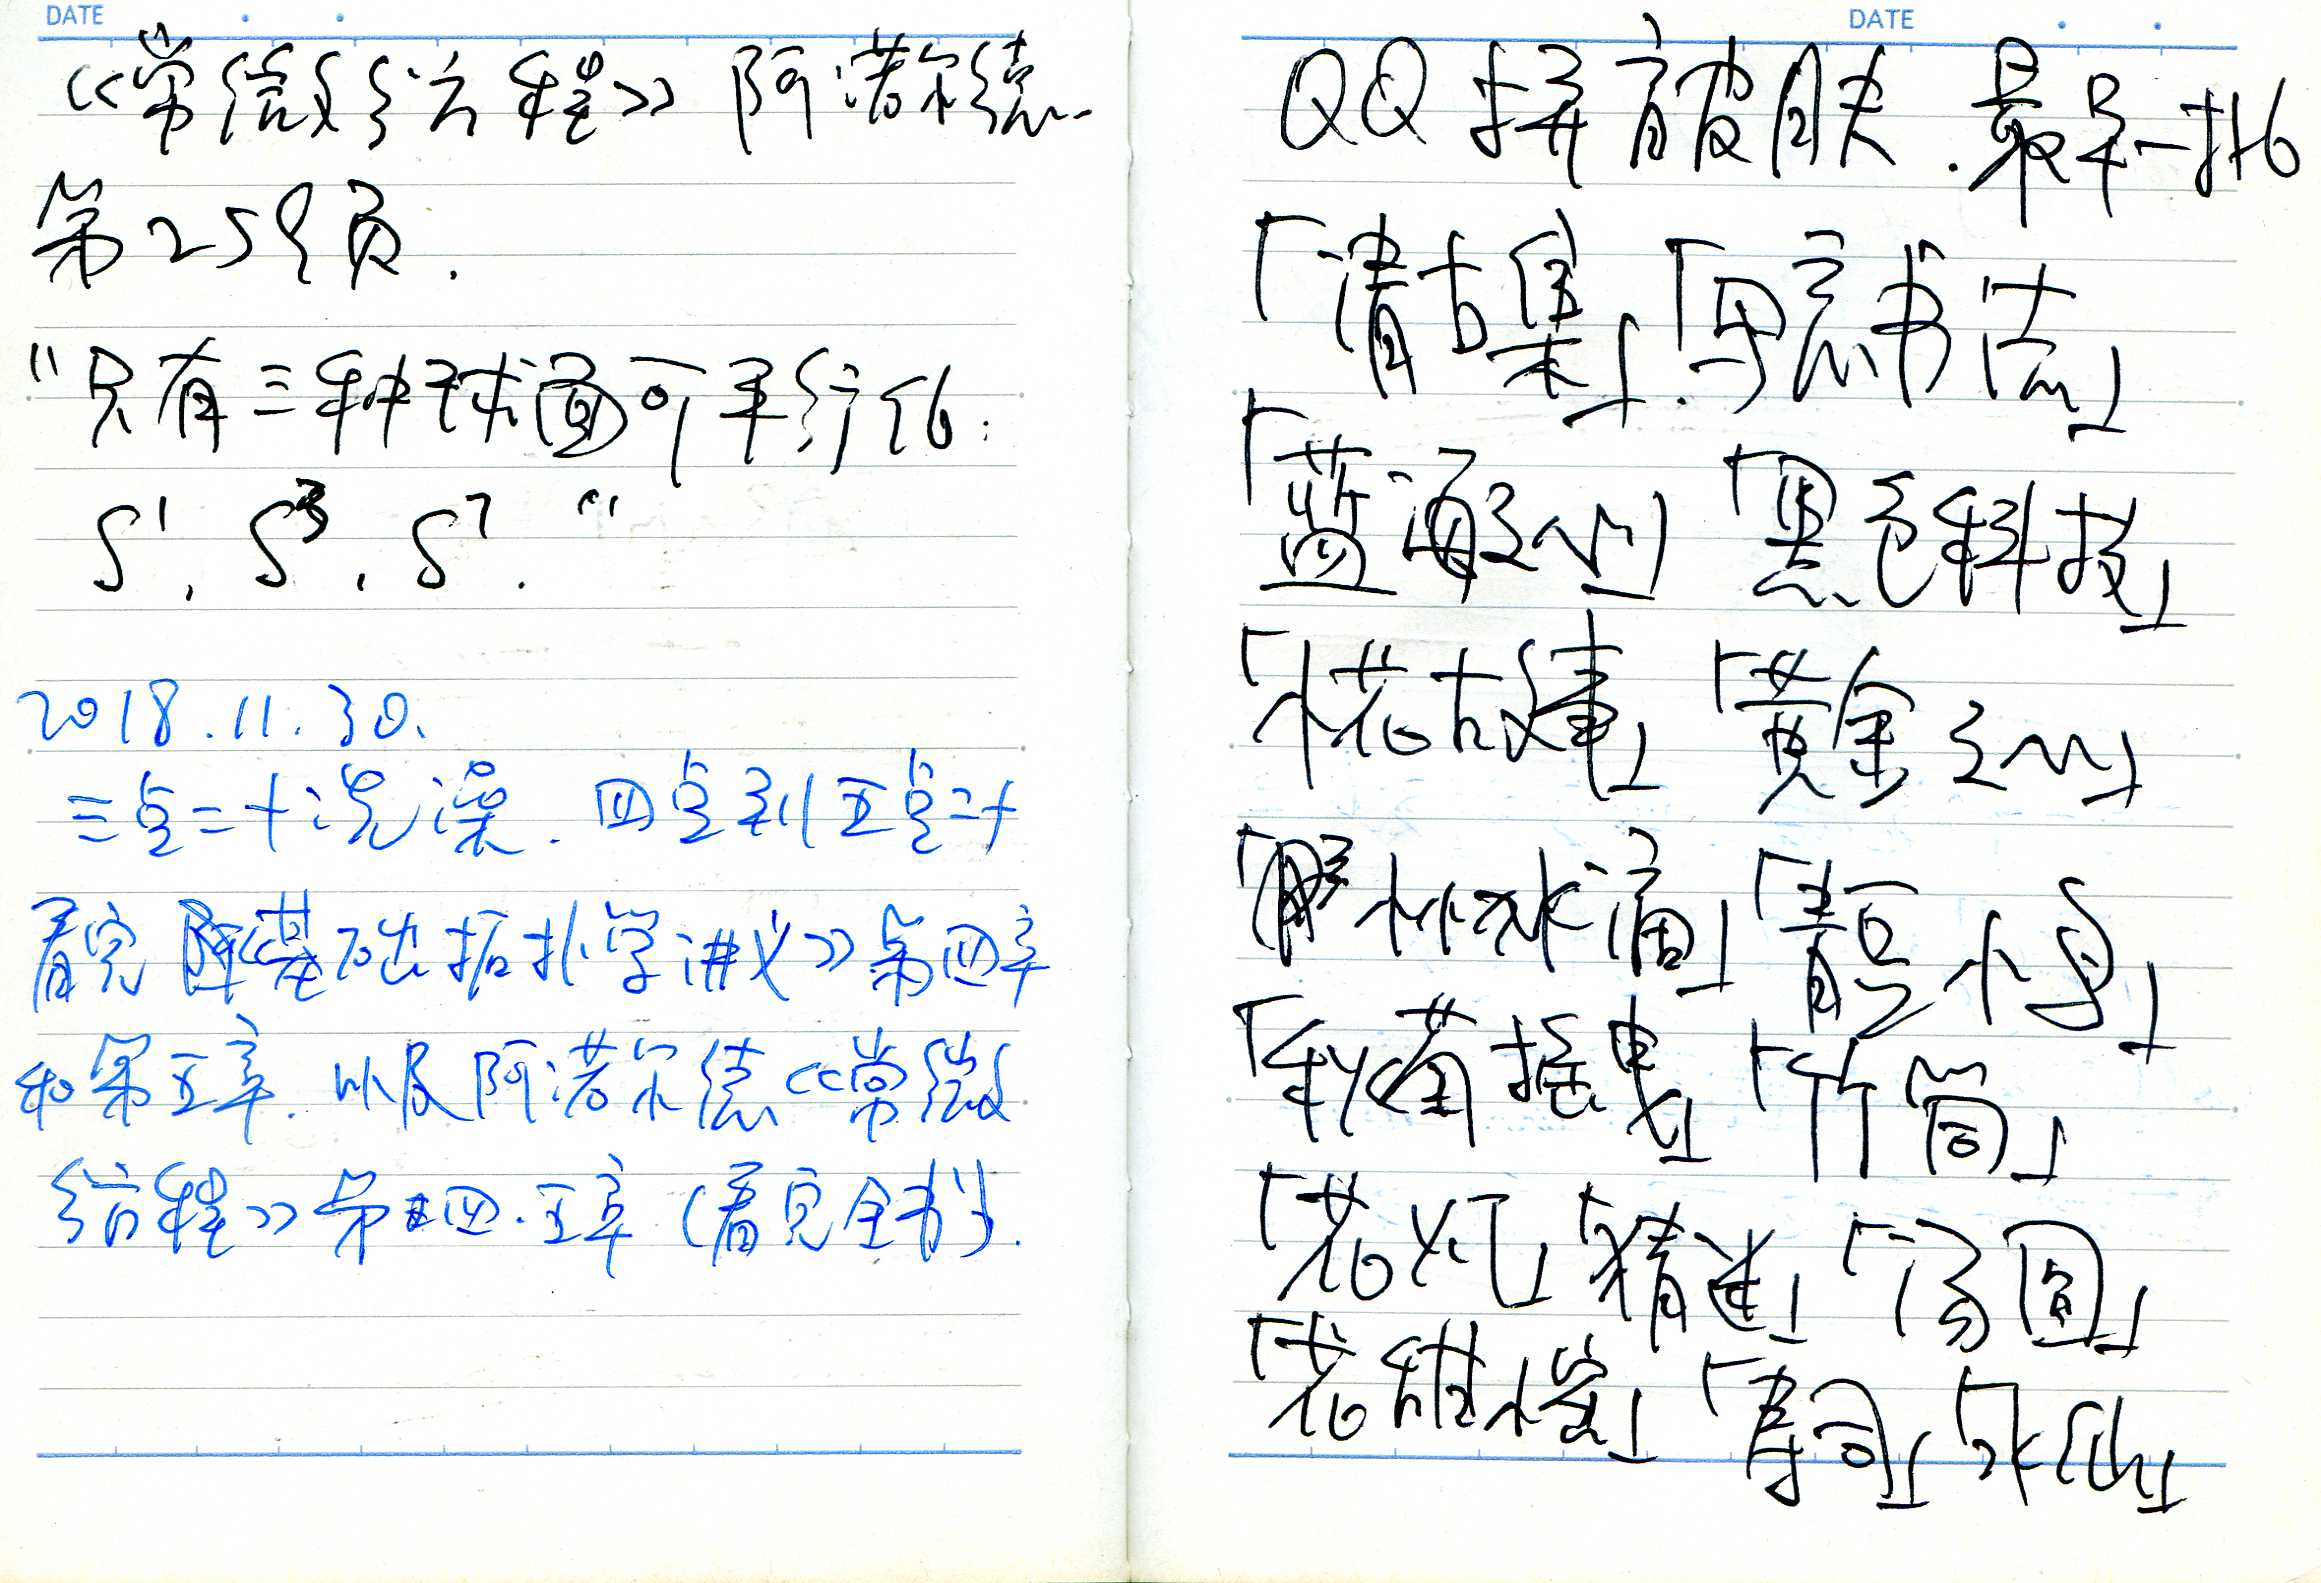 DATE
《常微分方程》阿诺尔德
第259页.
"只有三种球面可平行化:
S¹, S³, S⁷."
2018.11.30.
三点二十洗澡.四点到五点二十
看完《基础拓扑学讲义》第四章
和第五章.以及阿诺尔德《常微
分方程》第四.五章(看完全书).
DATE
QQ拼音皮肤.最早一批
「清古集」.「写意书法」
「蓝海之心」「黑色科技」
「花古建」「黄金之心」
「水滴」「小鸟」
「秋菊摇曳」「竹简」
「花火」「猜谜」「汤圆」
「花甜蜜」「寿司」「水仙」